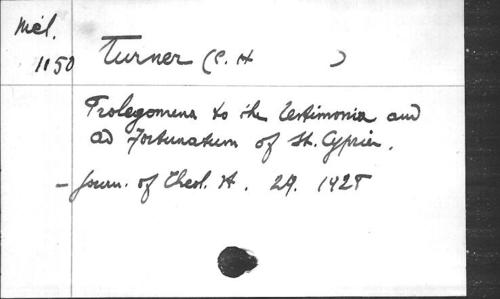 Mél.
1150
Turner (C. H )
Prolegomena to the testimonia and
ad Fortunatum of St. Cyprian.
- Journ. of Theol. St. 29. 1928